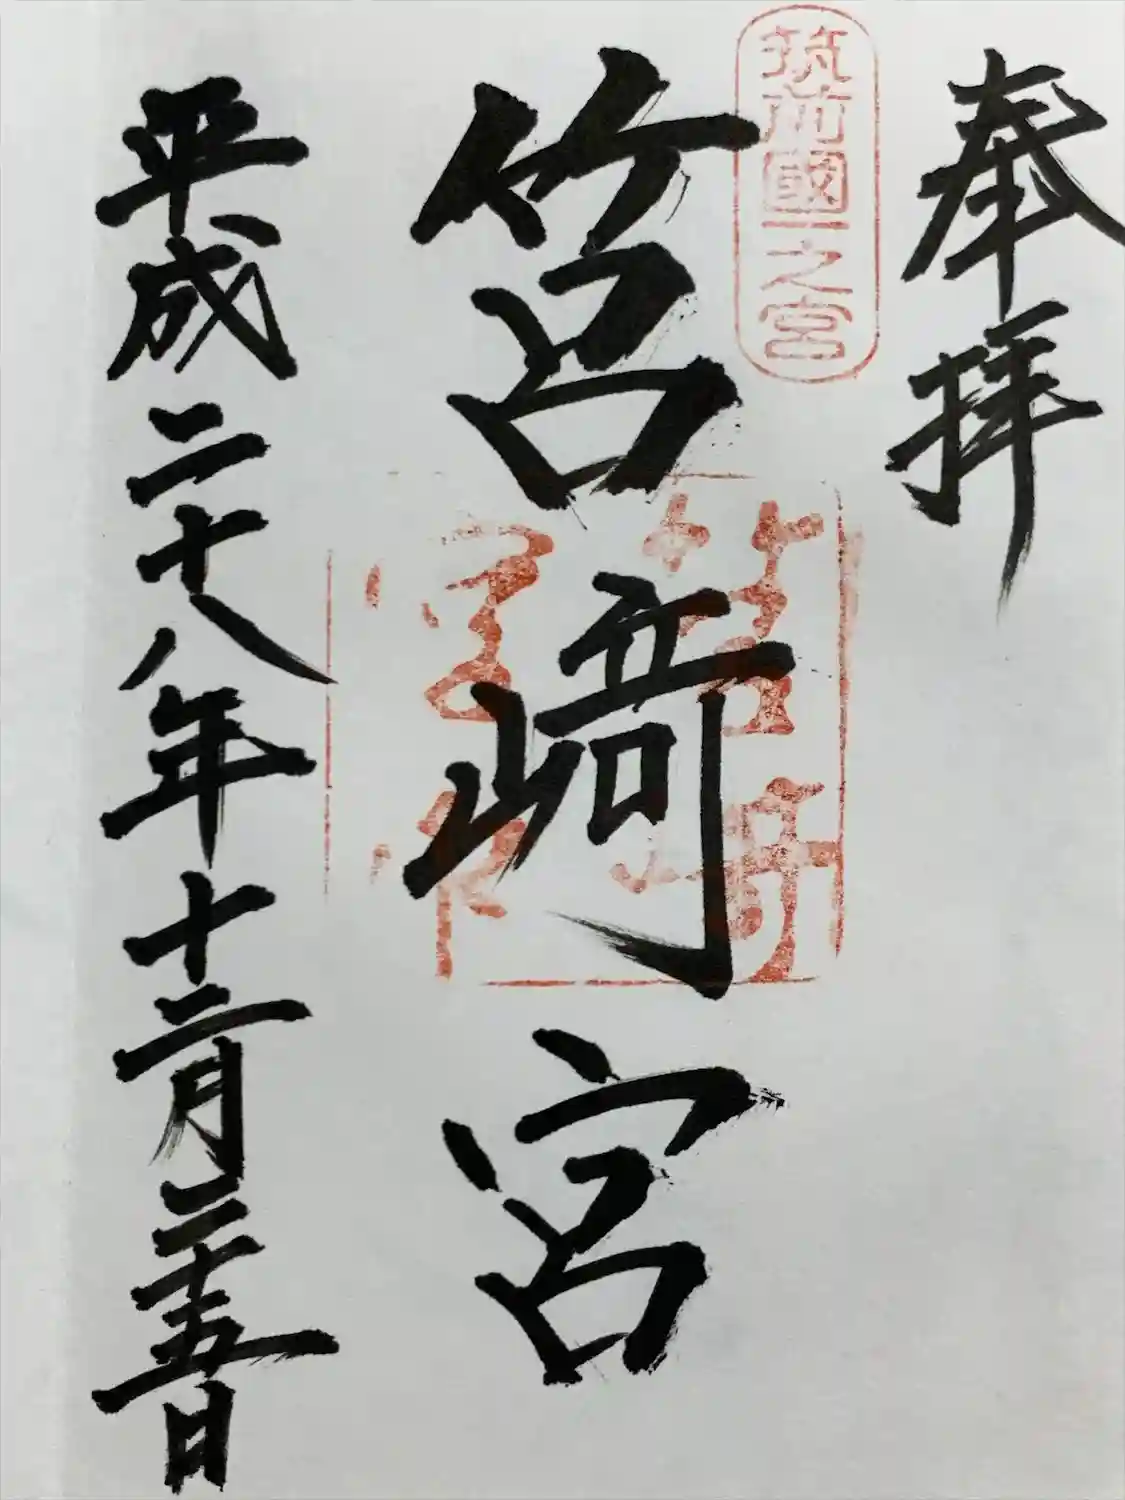 奉拝
筑前國一之宮
筥崎宮
平成二十八年十二月二十五日